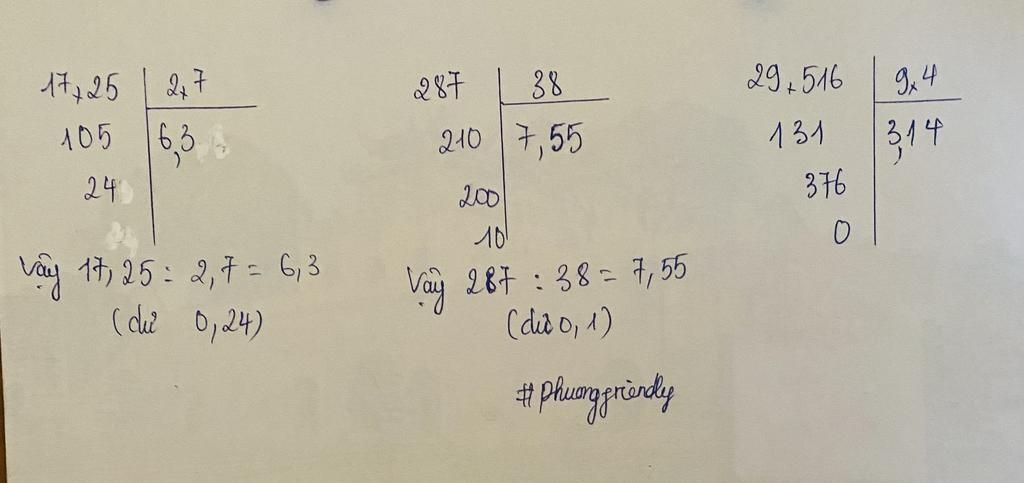 17,25 2,7
105 6,3
24
Vậy 17,25 : 2,7 = 6,3
(dư 0,24)
287 38
210 7,55
200
10
Vậy 287 : 38 = 7,55
(dư 0,1)
29,516 9,4
131 3,14
376
0
#phuongfriendly